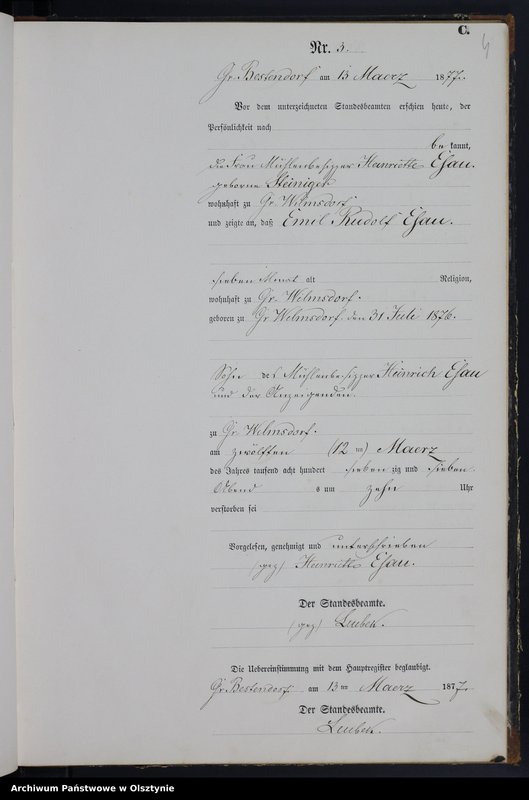 C.
4
Nr. 3.
Gr. Bestendorf am 13 Maerz 1877.
Vor dem unterzeichneten Standesbeamten erschien heute, der
Persönlichkeit nach
be kannt,
die Frau Mühlenbesitzer Henriette Esau.
geborne Steiniger
wohnhaft zu Gr. Wilmsdorf
und zeigte an, daß Emil Rudolf Esau.
sieben Monat alt Religion,
wohnhaft zu Gr. Wilmsdorf.
geboren zu Gr Wilmsdorf. den 31 Juli 1876.
Sohn des Mühlenbesitzer Heinrich Esau
und der Anzeigenden.
zu Gr. Wilmsdorf.
am zwölften (12 ten) Maerz
des Jahres tausend acht hundert sieben zig und sieben
Abend s um zehn Uhr
verstorben sei
Vorgelesen, genehmigt und unterschrieben
(gez) Henriette Esau.
Der Standesbeamte.
(gez)
Die Uebereinstimmung mit dem Hauptregister beglaubigt.
Gr. Bestendorf am 13 ten Maerz 1877.
Der Standesbeamte.
Archiwum Państwowe w Olsztynie